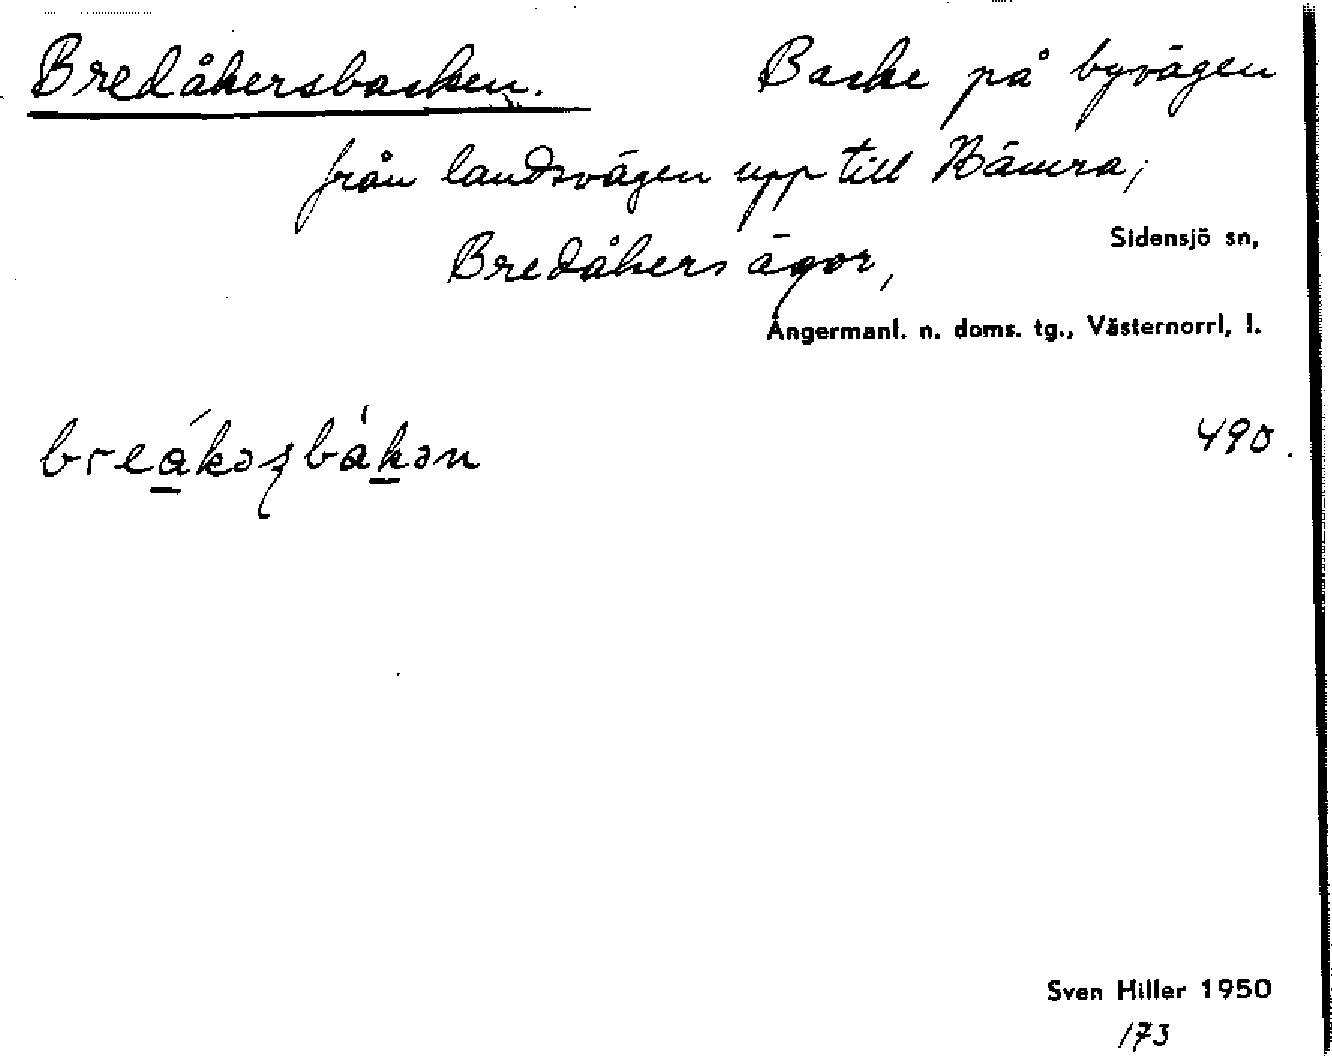 Bredåkersbacken. Backe på byvägen
från landsvägen upp till Bämra;
Sidensjö sn,
Bredåkers ägor,
Ångermanl. n. doms. tg., Västernorrl, l.
490.
Sven Hiller 1950
173